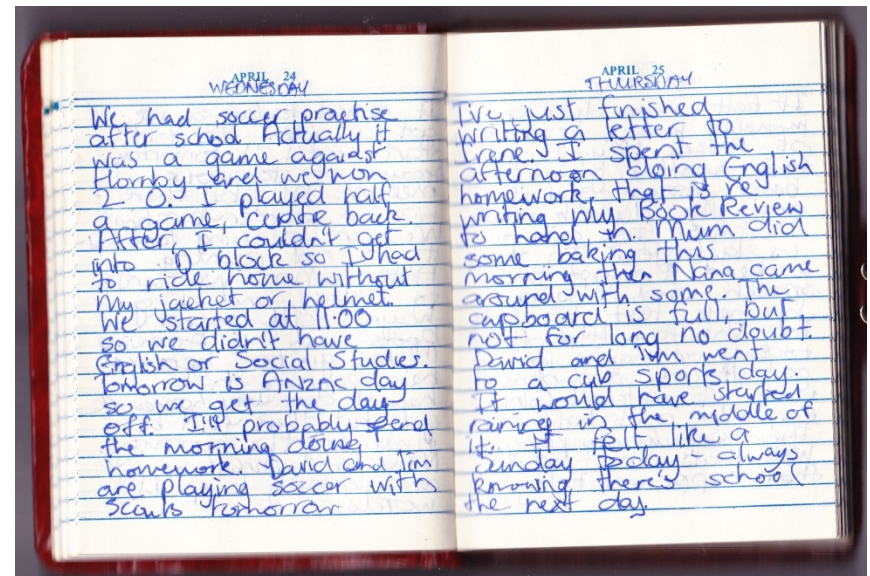 APRIL 24
WEDNESDAY
We had soccer practise
after school Actually it
was a game against
Hornby and we won
2 0. I played half
a game, centre back.
After, I couldn't get
into 'D' block so I had
to ride home without
my jacket or helmet.
We started at 11.00
so we didn't have
English or Social Studies.
Tomorrow is ANZAC day
so we get the day
off. I'll probably spend
the morning doing
homework. David and Jim
are playing soccer with
Scouts tomorrow
APRIL 25
THURSDAY
I've just finished
writing a letter to
Irene. I spent the
afternoon doing English
homework, that is re
writing my Book Review
to hand in. Mum did
some baking this
morning then Nana came
around with some. The
cupboard is full, but
not for long no doubt.
David and Jim went
to a cub sports day.
It would have started
raining in the middle of
it. It felt like a
Sunday today - always
knowing there's school
the next day.